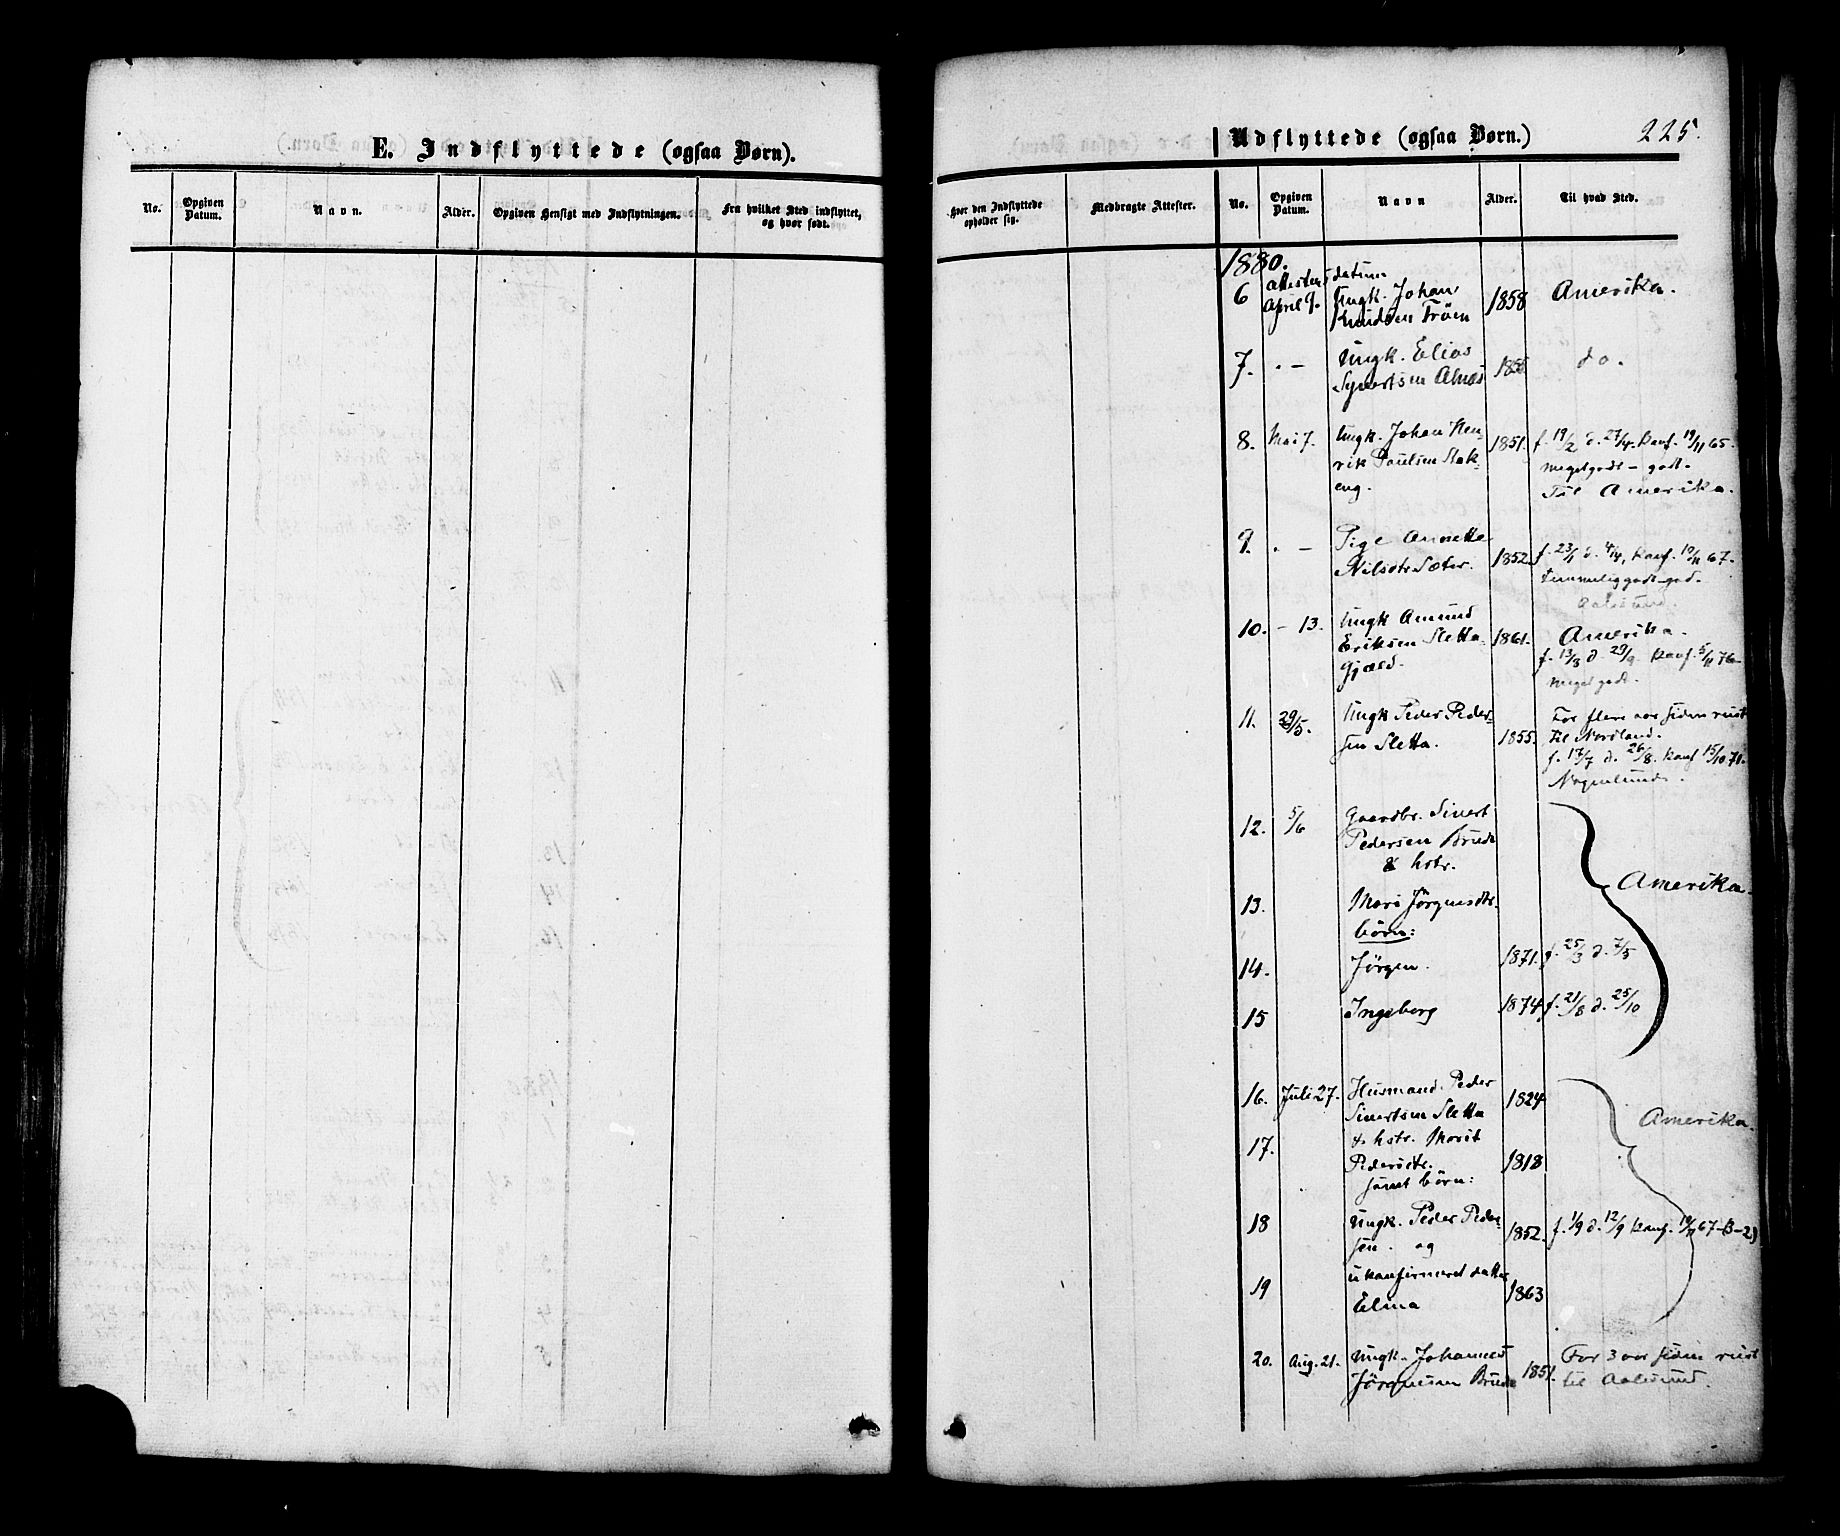 E. Indflyttede (ogsaa Børn).
No.
Opgiven Datum.
Navn.
Alder.
Opgiven Hensigt med Indflytningen.
Fra hvilket Sted indflyttet, og hvor født.
Udflyttede (ogsaa Børn.)
225.
Hvor den Indflyttede opholder sig.
Medbragte Attester.
No.
Opgiven Datum.
Navn
Alder.
Til hvad Sted.
1880.
attestens datum
6 April 9. Ungk. Johan 1858 Amerika.
Knudsen Tröen
7. . – Ungk. Elias 185 do.
Syvertsen Alnes
8. Mai 7. Ungk. Johan Hen- 1851. f. 19/2 d. 27/4. konf. 19/11 65.
rik Paulsen Stok- meget godt – godt.
eng. Til Amerika.
9. . – Pige Annette
Nilsdtr Sæter. 1852. f. 23/1 d. 4/4, konf. 10/11 67.
temmelig godt–god.
Aalesund.
10. – 13. Ungk Amund
Eriksen Sletta 1861. Amerika.
Gjæld. f. 13/8 d. 29/9 konf. 5/11 76–
meget godt.
11. 29/5. Ungk Peder Peder- For flere aar siden reist
sen Sletta. 1855. til Nordland.
f. 17/7 d. 26/8. konf 15/10 71.
12. 5/6 Gaardbr. Sivert
Pedersen Brude
& hstr. Amerika.
13. Mari Jörgensdtr.
börn:
14. Jörgen. 1871. f. 25/3 d. 7/5
15 Ingeborg 1874 f. 21/8 d. 25/10
16. Juli 27. Husmand Peder 1824
Sivertsen Sletta Amerika.
17. & hstr. Marit
Pedersdtr. 1818
samt börn:
18 Ungk. Peder Peder- 1852. f. 1/9 d. 12/9 konf. 10/11 67–B–2)
sen. og
19 ukonfirmeret datter
Elina 1863
20. Aug. 21. Ungk. Johannes For 3 aar siden reist
Jörgensen Brude 1851. til Aalesund.